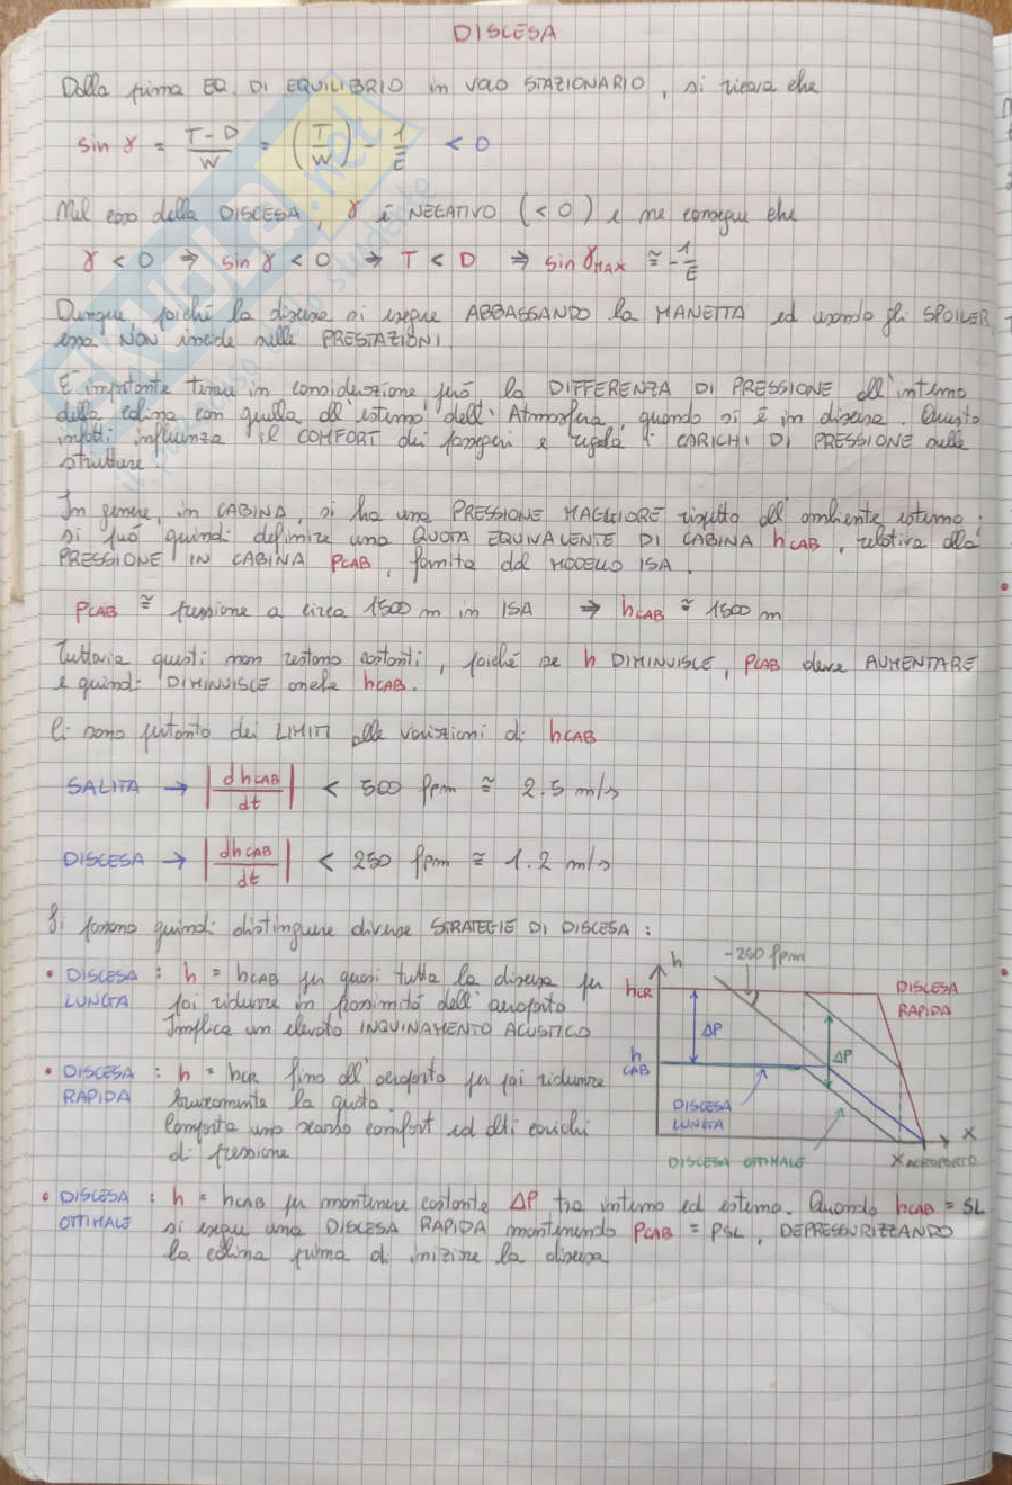 DISCESA
Dalla prima EQ. DI EQUILIBRIO in VOLO STAZIONARIO, si ricava che
sin γ = (T - D)/W = (T/W) - 1/E < 0
Nel caso della DISCESA, γ è NEGATIVO (< 0) e ne consegue che
γ < 0 ⇒ sin γ < 0 ⇒ T < D ⇒ sin γMAX ≅ -1/E
Dunque, poiché la discesa si esegue ABBASSANDO la MANETTA ed usando gli SPOILER,
essa NON incide nelle PRESTAZIONI.
È importante tenere in considerazione però la DIFFERENZA DI PRESSIONE all'interno
della cabina con quella all'esterno dell'Atmosfera, quando si è in discesa. Questo
infatti influenza il COMFORT dei passeggeri e regola i CARICHI DI PRESSIONE sulle
strutture.
In genere, in CABINA, si ha una PRESSIONE MAGGIORE rispetto all'ambiente esterno;
si può quindi definire una QUOTA EQUIVALENTE DI CABINA hCAB, relativa alla
PRESSIONE IN CABINA pCAB, fornita dal MODELLO ISA.
pCAB ≅ pressione a circa 1500 m in ISA → hCAB ≅ 1500 m
Tuttavia questi non restano costanti, poiché se h DIMINUISCE, pCAB deve AUMENTARE
e quindi DIMINUISCE anche hCAB.
Ci sono pertanto dei LIMITI alle variazioni di hCAB
SALITA → |dhCAB/dt| < 500 fpm ≅ 2.5 m/s
DISCESA → |dhCAB/dt| < 250 fpm ≅ 1.2 m/s
Si possono quindi distinguere diverse STRATEGIE DI DISCESA:
• DISCESA LUNGA : h = hCAB per quasi tutta la discesa per
poi ridurre in prossimità dell'aeroporto
Implica un elevato INQUINAMENTO ACUSTICO
• DISCESA RAPIDA : h = hCR fino all'aeroporto per poi ridurre
bruscamente la quota.
Comporta uno scarso comfort ed alti carichi
di pressione
h
-250 fpm
hCR
DISCESA
RAPIDA
ΔP
ΔP
h
CAB
DISCESA
LUNGA
DISCESA OTTIMALE
XAEROPORTO
X
• DISCESA OTTIMALE : h = hCAB per mantenere costante ΔP tra interno ed esterno. Quando hCAB = SL
si esegue una DISCESA RAPIDA mantenendo pCAB = pSL, DEPRESSURIZZANDO
la cabina prima di iniziare la discesa